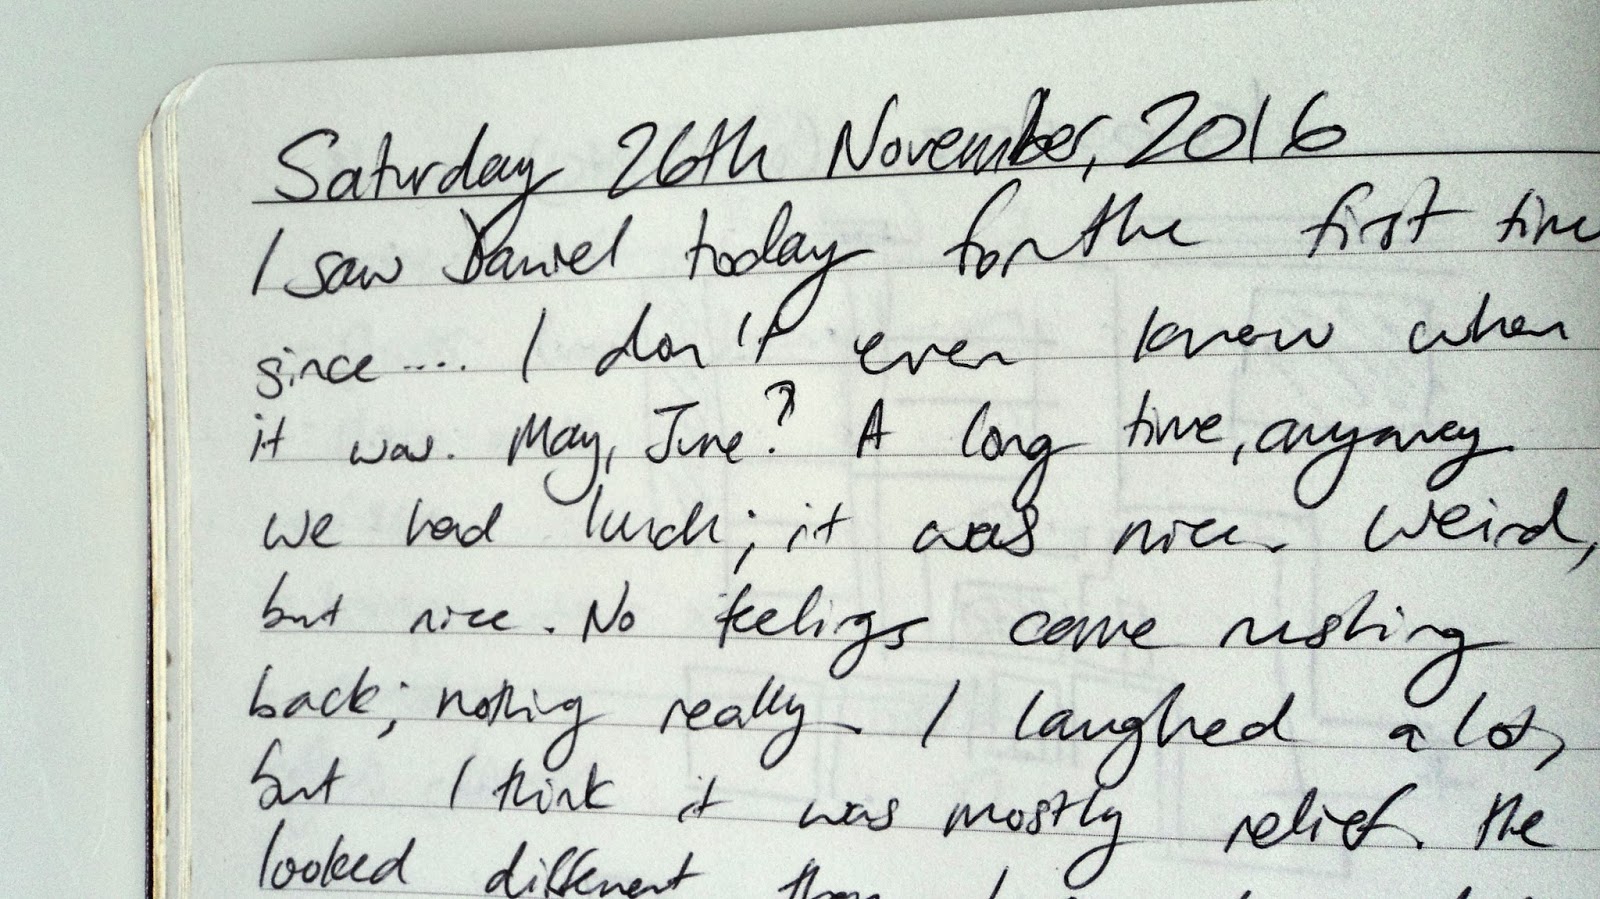 Saturday 26th November, 2016
I saw Daniel today for the first time
since .... I don't even know when
it was. May, June? A long time, anyway.
We had lunch; it was nice. Weird,
but nice. No feelings came rushing
back; nothing really. I laughed a lot,
but I think it was mostly relief. He
looked different than I